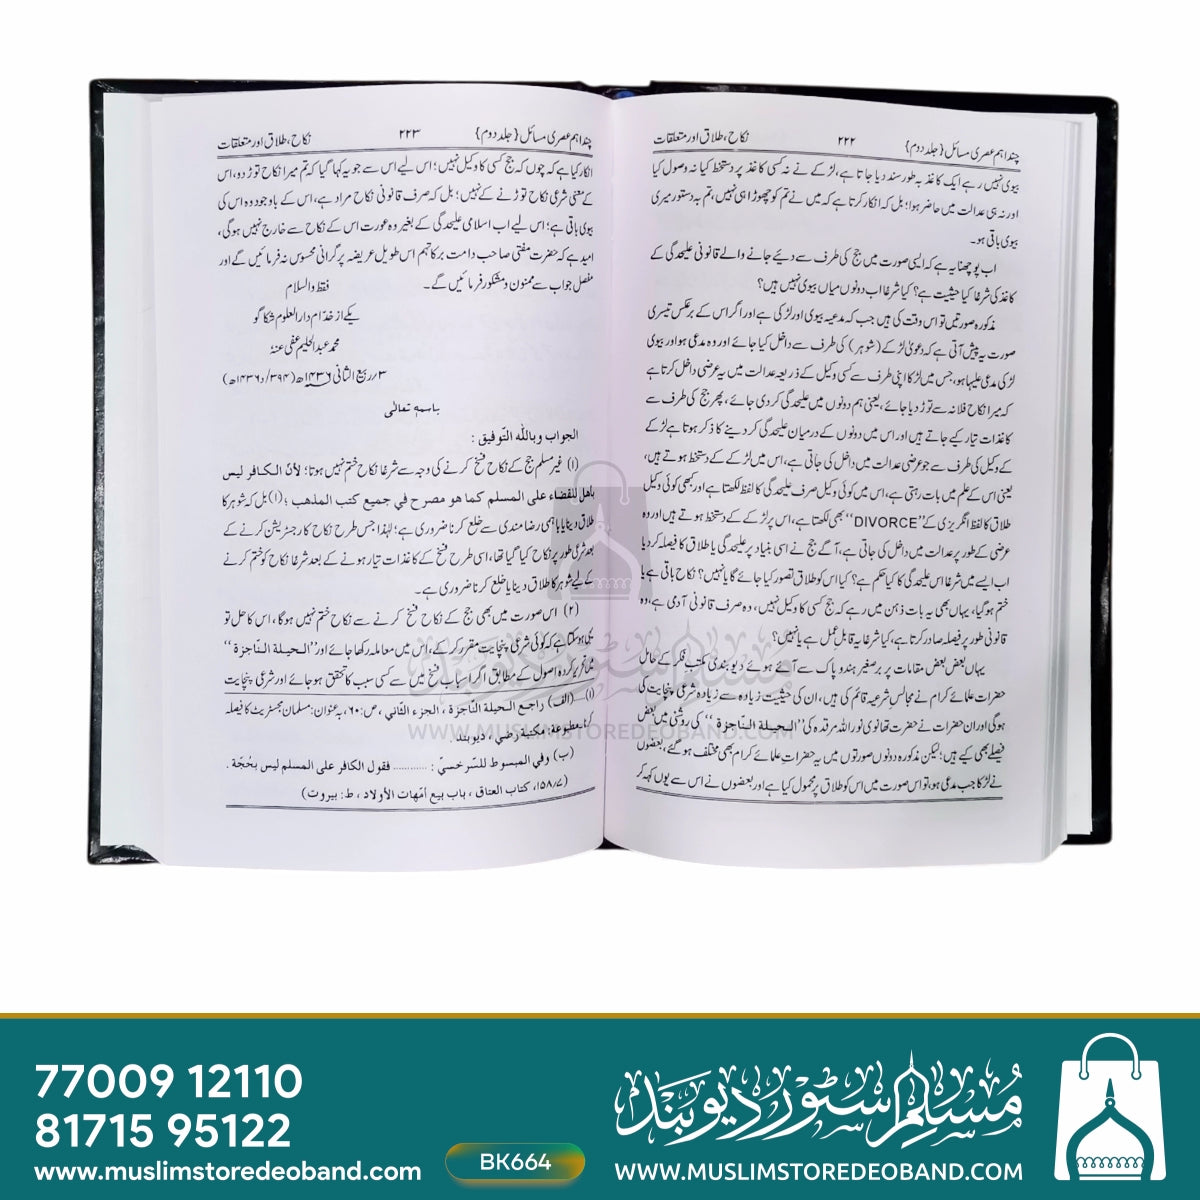 چند اہم عصری مسائل {جلد دوم} ۲۲۲ نکاح، طلاق اور متعلقات
بیوی نہیں رہے ایک کاغذ بہ طور سند دیا جاتا ہے، لڑکے نے نہ کسی کاغذ پر دستخط کیا نہ وصول کیا
اور نہ ہی عدالت میں حاضر ہوا؛ بل کہ انکار کرتا ہے کہ میں نے تم کو چھوڑا ہی نہیں، تم بہ دستور میری
بیوی باقی ہو۔
اب پوچھنا یہ ہے کہ ایسی صورت میں جج کی طرف سے دیئے جانے والے قانونی علیحدگی کے
کاغذ کی شرعا کیا حیثیت ہے؟ کیا شرعا اب دونوں میاں بیوی نہیں ہیں؟
مذکورہ صورتیں تو اس وقت کی ہیں جب کہ مدعیہ بیوی اور لڑکی ہے اور اگر اس کے برعکس تیسری
صورت یہ پیش آتی ہے کہ دعویٰ لڑکے (شوہر) کی طرف سے داخل کیا جائے اور وہ مدعی ہو اور بیوی
لڑکی مدعی علیہا ہو، جس میں لڑکا اپنی طرف سے کسی وکیل کے ذریعہ عدالت میں یہ عرضی داخل کرتا ہے
کہ میرا نکاح فلانہ سے توڑ دیا جائے، یعنی ہم دونوں میں علیحدگی کر دی جائے، پھر جج کی طرف سے
کاغذات تیار کیے جاتے ہیں اور اس میں دونوں کے درمیان علیحدگی کر دینے کا ذکر ہوتا ہے لڑکے
کے وکیل کی طرف سے جو عرضی عدالت میں داخل کی جاتی ہے، اس میں لڑکے کے دستخط ہوتے ہیں،
یعنی اس کے علم میں بات رہتی ہے، اس میں کوئی وکیل صرف علیحدگی کا لفظ لکھتا ہے اور کبھی کوئی وکیل
طلاق کا لفظ انگریزی کے "DIVORCE" بھی لکھتا ہے، اس پر لڑکے کے دستخط ہوتے ہیں اور وہ
عرضی کے طور پر عدالت میں داخل کی جاتی ہے، آگے جج نے اسی بنیاد پر علیحدگی یا طلاق کا فیصلہ کر دیا
اب ایسے میں شرعا اس علیحدگی کا کیا حکم ہے؟ کیا اس کو طلاق تصور کیا جائے گا یا نہیں؟ نکاح باقی ہے یا
ختم ہو گیا، یہاں بھی یہ بات ذہن میں رہے کہ جج کسی کا وکیل نہیں، وہ صرف قانونی آدمی ہے، وہ
قانونی طور پر فیصلہ صادر کرتا ہے، کیا شرعا یہ قابل عمل ہے یا نہیں؟
یہاں بعض بعض مقامات پر برصغیر ہند و پاک سے آئے ہوئے دیوبندی مکتب فکر کے حامل
حضرات علمائے کرام نے مجالس شرعیہ قائم کی ہیں، ان کی حیثیت زیادہ سے زیادہ شرعی پنچایت کی
ہوگی اور ان حضرات نے حضرت تھانوی نور اللہ مرقدہ کی "الحیلۃ الناجزۃ" کی روشنی میں بعض
فیصلے بھی کیے ہیں؛ لیکن مذکورہ دونوں صورتوں میں یہ حضرات علمائے کرام بھی مختلف ہو گئے، بعضوں
نے لڑکا جب مدعی ہو، تو اس صورت میں اس کو طلاق پر محمول کیا ہے اور بعضوں نے اس سے یوں کہہ کر
چند اہم عصری مسائل {جلد دوم} ۲۲۳ نکاح، طلاق اور متعلقات
انکار کیا ہے کہ چوں کہ جج کسی کا وکیل نہیں؛ اس لیے اس سے جو یہ کہا گیا کہ تم میرا نکاح توڑ دو، اس
کے معنی شرعی نکاح توڑنے کے نہیں؛ بل کہ صرف قانونی نکاح مراد ہے، اس کے باوجود وہ اس کی
بیوی باقی ہے؛ اس لیے اب اسلامی علیحدگی کے بغیر وہ عورت اس کے نکاح سے خارج نہیں ہوگی،
امید ہے کہ حضرت مفتی صاحب دامت برکاتہم اس طویل عریضہ پر گرانی محسوس نہ فرمائیں گے اور
مفصل جواب سے ممنون و مشکور فرمائیں گے۔
فقط والسلام
یکے از خدام دار العلوم شکاگو
محمد عبد الحلیم عفی عنہ
۳/ربیع الثانی ۱۴۳۶ھ (۳۹۴/د ۱۴۳۶ھ)
باسمہٖ تعالیٰ
الجواب وبالله التّوفيق :
(۱) غیر مسلم جج کے نکاح فسخ کرنے کی وجہ سے شرعا نکاح ختم نہیں ہوتا؛ لأنّ الكافر ليس
باهل للقضاء على المسلم كما هو مصرح في جميع كتب المذهب ؛(۱) بل کہ شوہر کا
طلاق دینا یا باہمی رضامندی سے خلع کرنا ضروری ہے؛ لہٰذا جس طرح نکاح کا رجسٹریشن کرنے کے
بعد شرعی طور پر نکاح کیا گیا تھا، اسی طرح فسخ کے کاغذات تیار ہونے کے بعد شرعا نکاح کو ختم کرنے
کے لیے شوہر کا طلاق دینا یا خلع کرنا ضروری ہے۔
(۲) اس صورت میں بھی جج کے نکاح فسخ کرنے سے نکاح ختم نہیں ہوگا، اس کا حل تو
یہی ہو سکتا ہے کہ کوئی شرعی پنچایت مقرر کر کے، اس میں معاملہ رکھا جائے اور "الحیلۃ الناجزۃ"
میں تحریر کردہ اصول کے مطابق اگر اسباب فسخ میں سے کسی سبب کا تحقق ہو جائے اور شرعی پنچایت
(۱) (الف) راجع الحيلة النّاجزة ، الجزء الثّاني ، ص:۶۰، بہ عنوان: مسلمان مجسٹریٹ کا فیصلہ
مطبوعة: مكتبة رضي ، ديوبند
(ب) وفي المبسوط للسّرخسيّ : ............ فقول الكافر على المسلم ليس بحُجّة .
(۱۵۸/۷، كتاب العتاق ، باب بيع أمّهات الأولاد ، ط: بيروت)
مسلم سٹور دیوبند
WWW.MUSLIMSTOREDEOBAND.COM
77009 12110
81715 95122
www.muslimstoredeoband.com
BK664
مسلم سٹور دیوبند
WWW.MUSLIMSTOREDEOBAND.COM